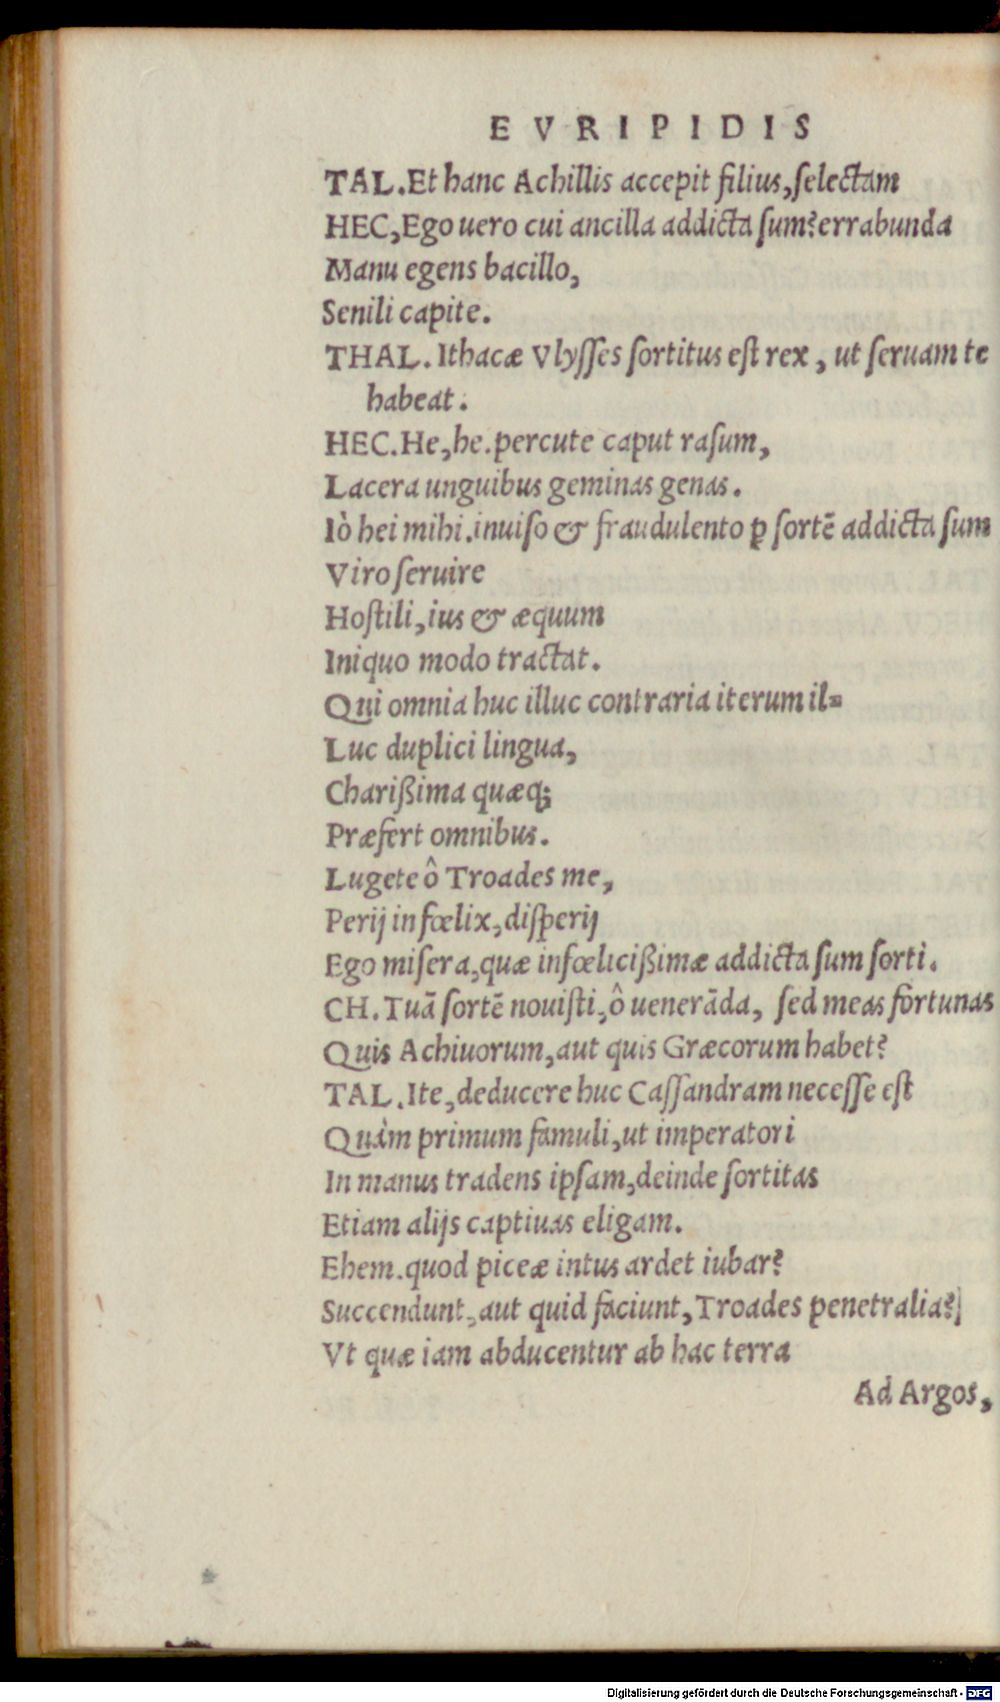 EVRIPIDIS
TAL.Et hanc Achillis accepit filius,ſelectam
HEC,Ego uero cui ancilla addicta ſum?errabunda
Manu egens bacillo,
Senili capite.
THAL. Ithacæ Vlyſſes ſortitus eſt rex, ut ſeruam te
habeat.
HEC.He,he.percute caput raſum,
Lacera unguibus geminas genas.
Iò hei mihi.inuiſo & fraudulento ꝑ ſortē addicta ſum
Viro ſeruire
Hoſtili,ius & æquum
Iniquo modo tractat.
Qui omnia huc illuc contraria iterum il-
Luc duplici lingua,
Charißima quæq;
Præfert omnibus.
Lugete ô Troades me,
Perij infœlix,diſperij
Ego miſera,quæ infœlicißimæ addicta ſum ſorti.
CH.Tuā ſortē nouiſti,ô uenerāda, ſed meas fortunas
Quis Achiuorum,aut quis Græcorum habet?
TAL.Ite,deducere huc Caſſandram neceſſe eſt
Quàm primum famuli,ut imperatori
In manus tradens ipſam,deinde ſortitas
Etiam alijs captiuas eligam.
Ehem.quod piceæ intus ardet iubar?
Succendunt,aut quid faciunt,Troades penetralia?
Vt quæ iam abducentur ab hac terra
Ad Argos,
Digitalisierung gefördert durch die Deutsche Forschungsgemeinschaft - DFG